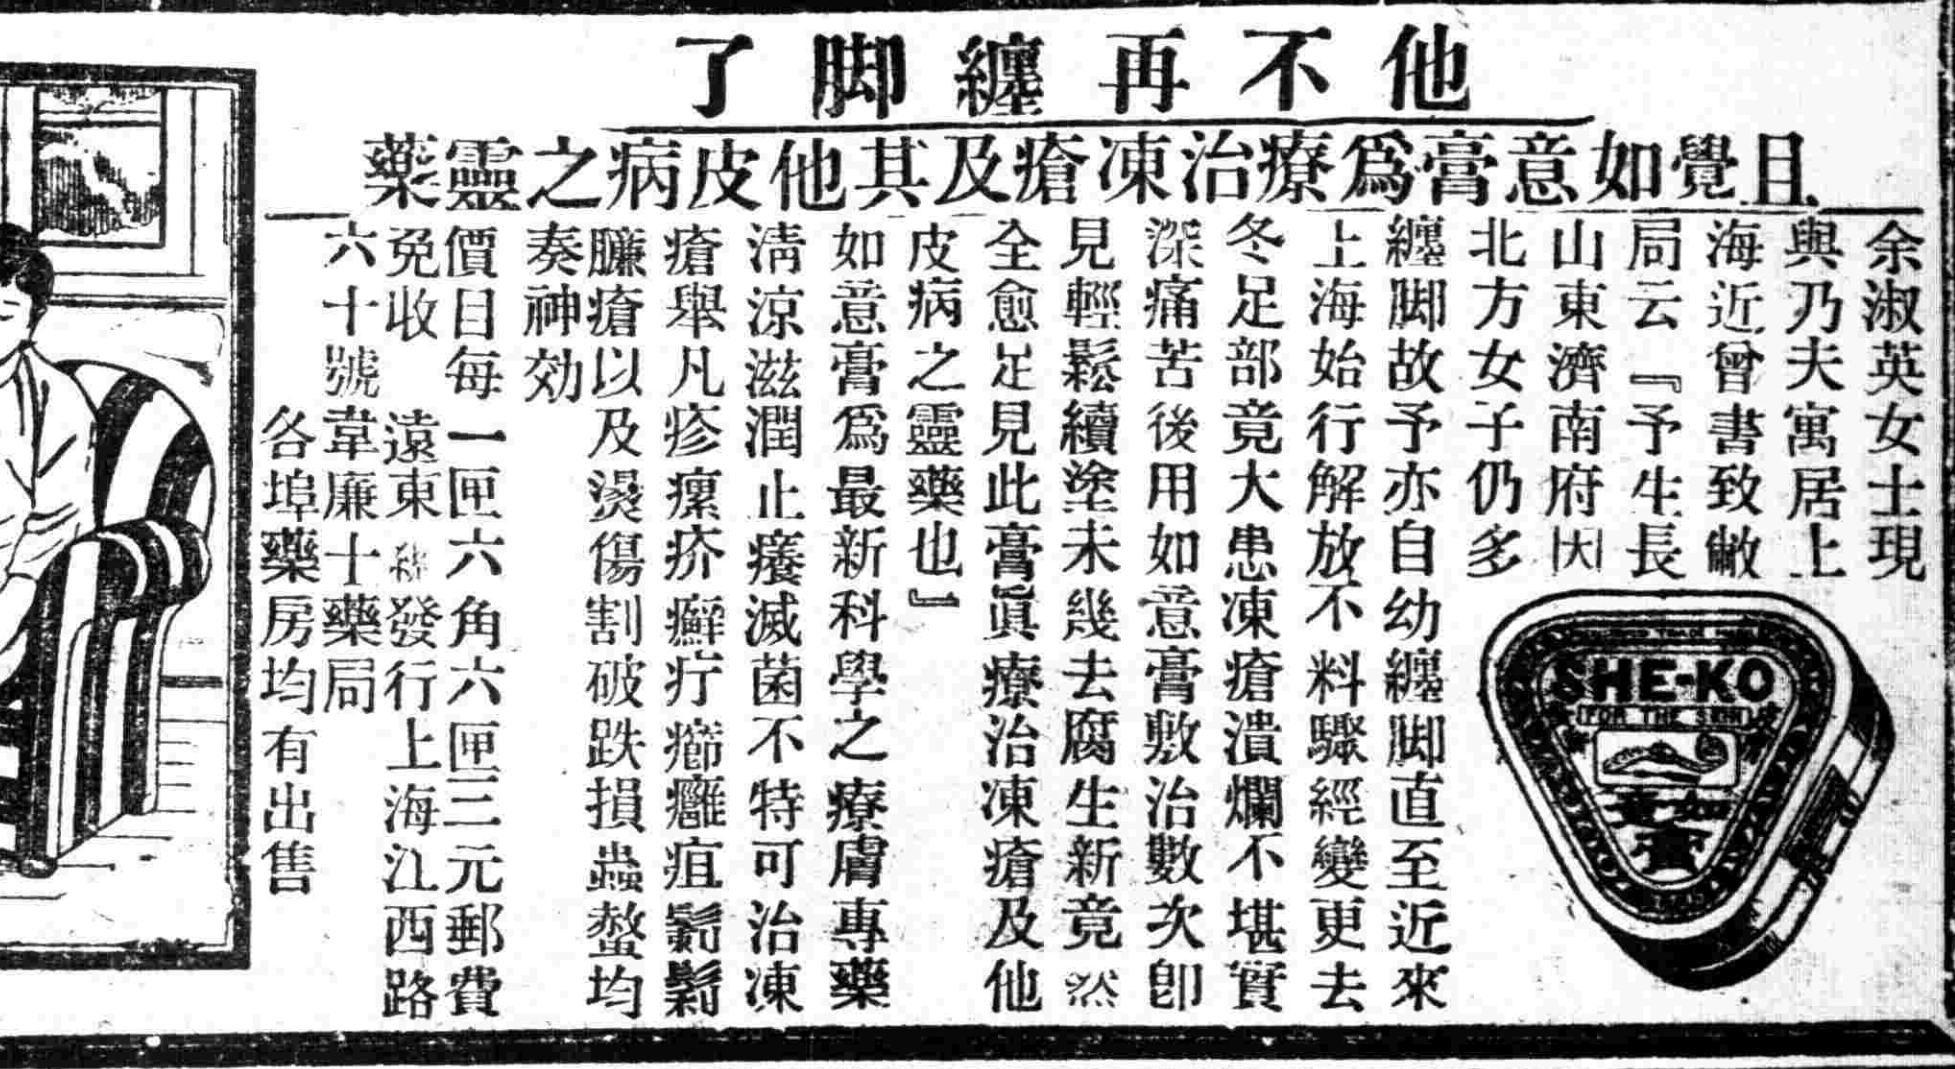 他不再纏脚了
且覺如意膏爲療治凍瘡及其他皮病之靈藥
余淑英女士現
與乃夫寓居上
海近曾書致敝
局云『予生長
山東濟南府因
北方女子仍多
纏脚故予亦自幼纏脚直至近來
上海始行解放不料驟經變更去
冬足部竟大患凍瘡潰爛不堪實
深痛苦後用如意膏敷治數次卽
見輕鬆續塗未幾去腐生新竟然
全愈足見此膏眞療治凍瘡及他
皮病之靈藥也』
如意膏爲最新科學之療膚專藥
淸涼滋潤止癢滅菌不特可治凍
瘡舉凡疹瘰疥癬疔癤癰疽
臁瘡以及燙傷割破跌損蟲螫均
奏神効
價目每一匣六角六匣三元郵費
免收 遠東發行上海江西路
六十號韋廉十藥局
各埠藥房均有出售
SHE-KO
FOR THE SKIN
如意
膏